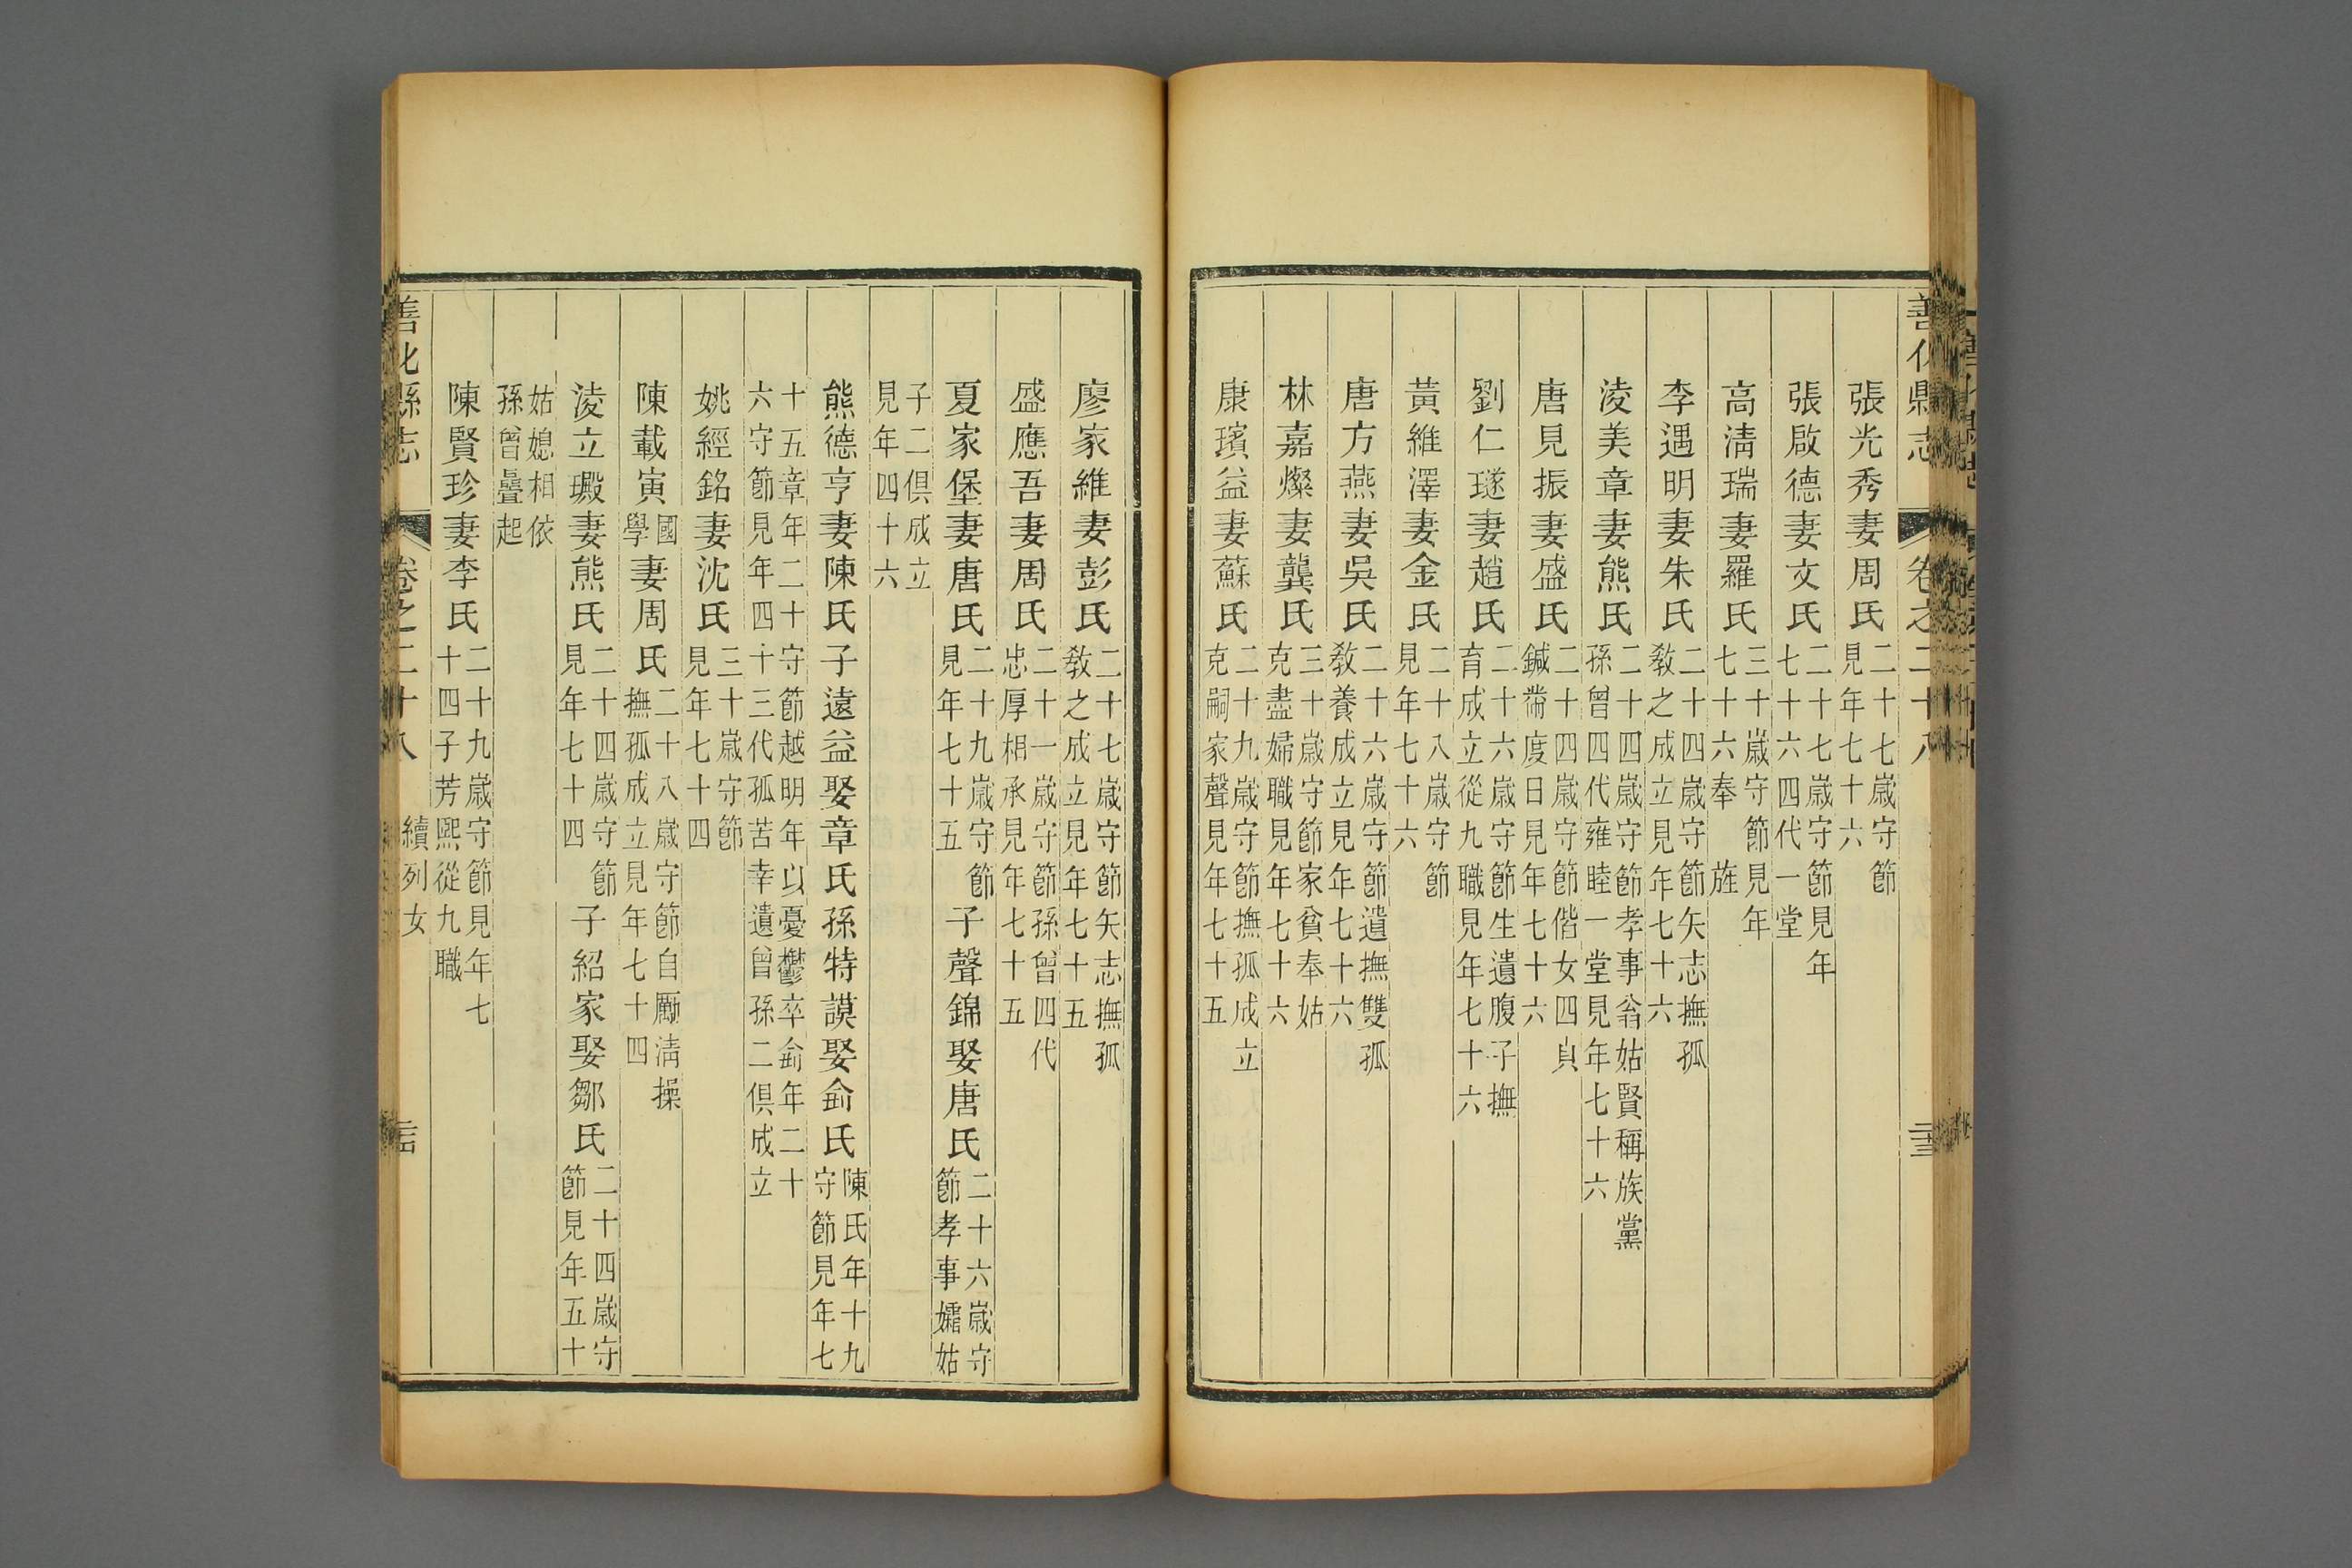 善化縣志 卷之二十八
張光秀妻周氏 二十七歲守節見年七十六
張啟德妻文氏 二十七歲守節見年七十六四代一堂
高淸瑞妻羅氏 三十歲守節見年七十六奉 旌
李遇明妻朱氏 二十四歲守節矢志撫孤教之成立見年七十六
淩美章妻熊氏 二十四歲守節孝事翁姑賢稱族黨孫曾四代雍睦一堂見年七十六
唐見振妻盛氏 二十四歲守節偕女四貞鍼黹度日見年七十六
劉仁璲妻趙氏 二十六歲守節生遺腹子撫育成立從九職見年七十六
黃維澤妻金氏 二十八歲守節見年七十六
唐方燕妻吳氏 二十六歲守節遺撫雙孤教養成立見年七十六
林嘉燦妻龔氏 三十歲守節家貧奉姑克盡婦職見年七十六
康璸益妻蘇氏 二十九歲守節撫孤成立克嗣家聲見年七十五
廖家維妻彭氏 二十七歲守節矢志撫孤教之成立見年七十五
盛應吾妻周氏 二十一歲守節孫曾四代忠厚相承見年七十五
夏家堡妻唐氏 二十九歲守節見年七十五 子聲錦娶唐氏 二十六歲守節孝事孀姑
子二俱成立見年四十六
熊德亨妻陳氏子遠益娶章氏孫特謨娶俞氏 陳氏年十九守節見年七
十五章年二十守節越明年以憂鬱卒俞年二十六守節見年四十三代孤苦幸遺曾孫二俱成立
姚經銘妻沈氏 三十歲守節見年七十四
陳載寅 國學 妻周氏 二十八歲守節自勵淸操撫孤成立見年七十四
淩立㻍妻熊氏 二十四歲守節見年七十四 子紹家娶鄒氏 二十四歲守節見年五十
姑媳相依孫曾疊起
陳賢珍妻李氏 二十九歲守節見年七十四子芳熙從九職
善化縣志 卷之二十八 續列女